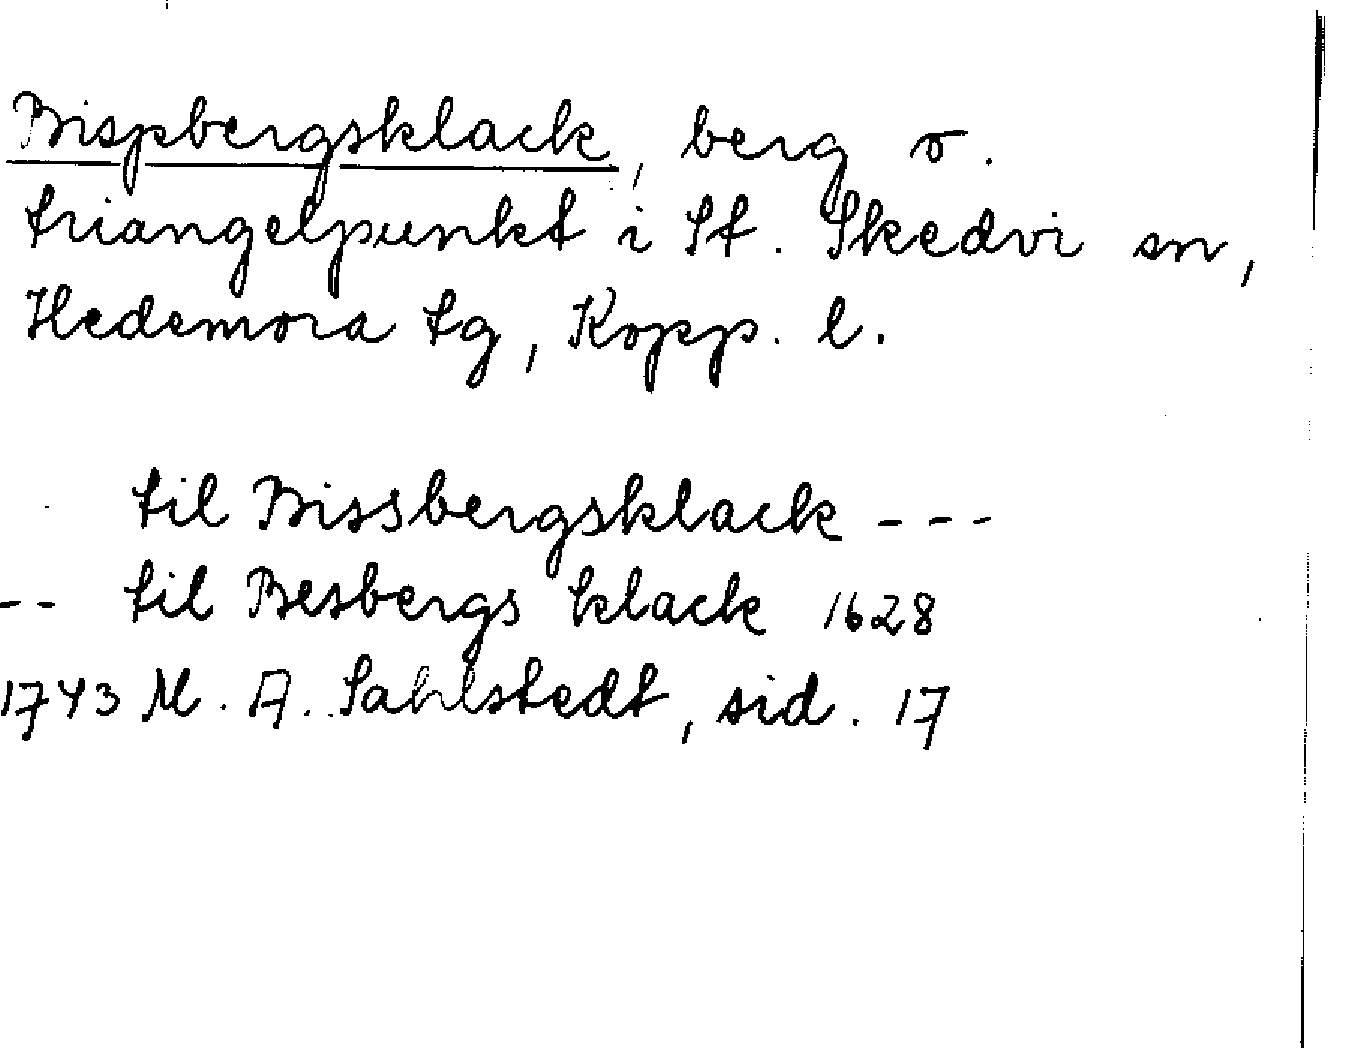 Bispbergsklack, berg o.
triangelpunkt i St. Skedvi sn,
Hedemora tg, Kopp. l.
til Bissbergsklack ---
-- til Besbergs klack 1628
1743 M. A. Sahlstedt, sid. 17